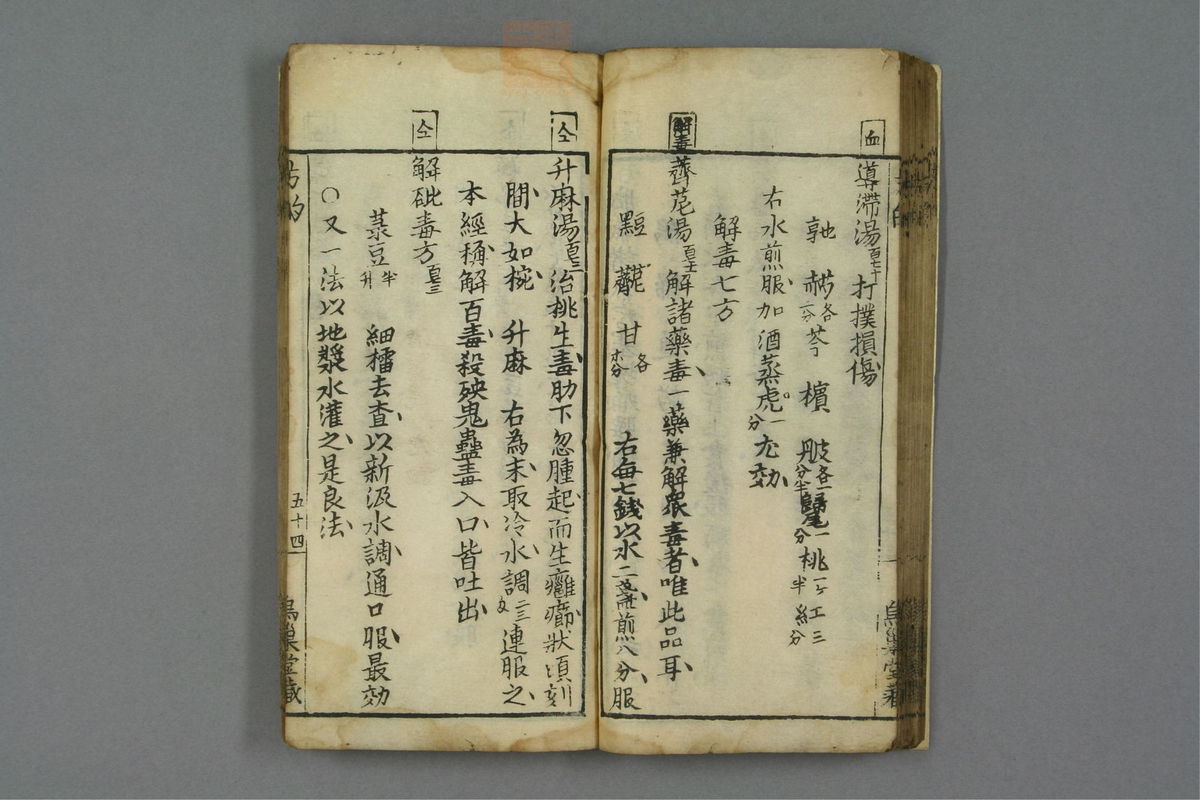 血
導滞湯 百七十 打撲損傷
芍 各二分 芩 檳 各一分半 歸尾 一分 桃 一ケ半 紅 三分
右水煎服加酒蒸虎一分尤効
解毒七方
解毒
薺苨湯 解諸藥毒一藥兼解衆毒者唯此品耳
黑豆 薺苨 甘 各 右每七錢以水二盞煎八分服
仝
升麻湯 治挑生毒肋下忽腫起而生癰癤狀頃刻
間大如椀 升麻 右為末取冷水調二三 連服之
本經稱解百毒殺殃鬼蠱毒入口皆吐出
仝
解砒毒方
菉豆 半升 細擂去査以新汲水調通口服最効
○又一法以地漿水灌之是良法
五十四
烏巢堂藏